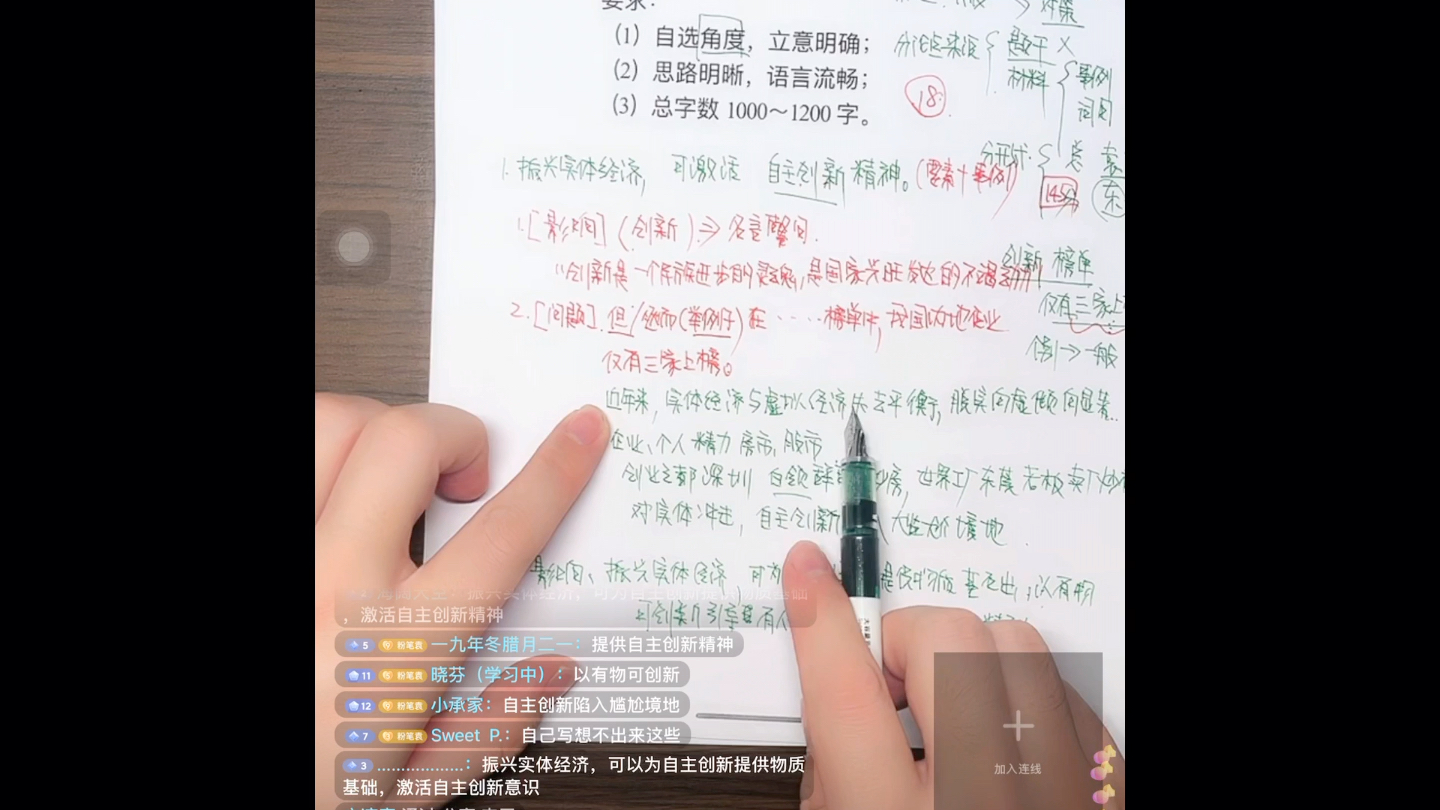 要求：
（1）自选角度，立意明确；
（2）思路明晰，语言流畅；
（3）总字数 1000～1200 字。
对策
分论点来源 题干 ×
材料 事例
词句
18
1. 振兴实体经济，可激活 自主创新精神。（要素＋事例）
总
东
1.［影响］（创新）⇒ 名言警句.
“创新是一个民族进步的灵魂，是国家兴旺发达的不竭动力
创新 榜单
仅有三家上
2.［问题］.但/然而（举例子）在 ‥‥‥榜单中，我国内地企业
仅有三家上榜。
例→一般
近年来，实体经济与虚拟经济失去平衡，脱实向虚倾向显著..
企业、个人 精力 房市，股市
创业之都深圳 白领辞 炒房，世界工厂东莞老板卖厂炒
对实体冲击，自主创新 入尴尬境地.
影响、振兴实体经济，可为 提供物质基础，以有明
，激活自主创新精神
5 粉笔袁 一九年冬腊月二一：提供自主创新精神
11 粉笔袁 晓芬（学习中）：以有物可创新
12 粉笔袁 小承家：自主创新陷入尴尬境地
7 粉笔袁 Sweet P.：自己写想不出来这些
3 ..................：振兴实体经济，可以为自主创新提供物质
基础，激活自主创新意识
加入连线